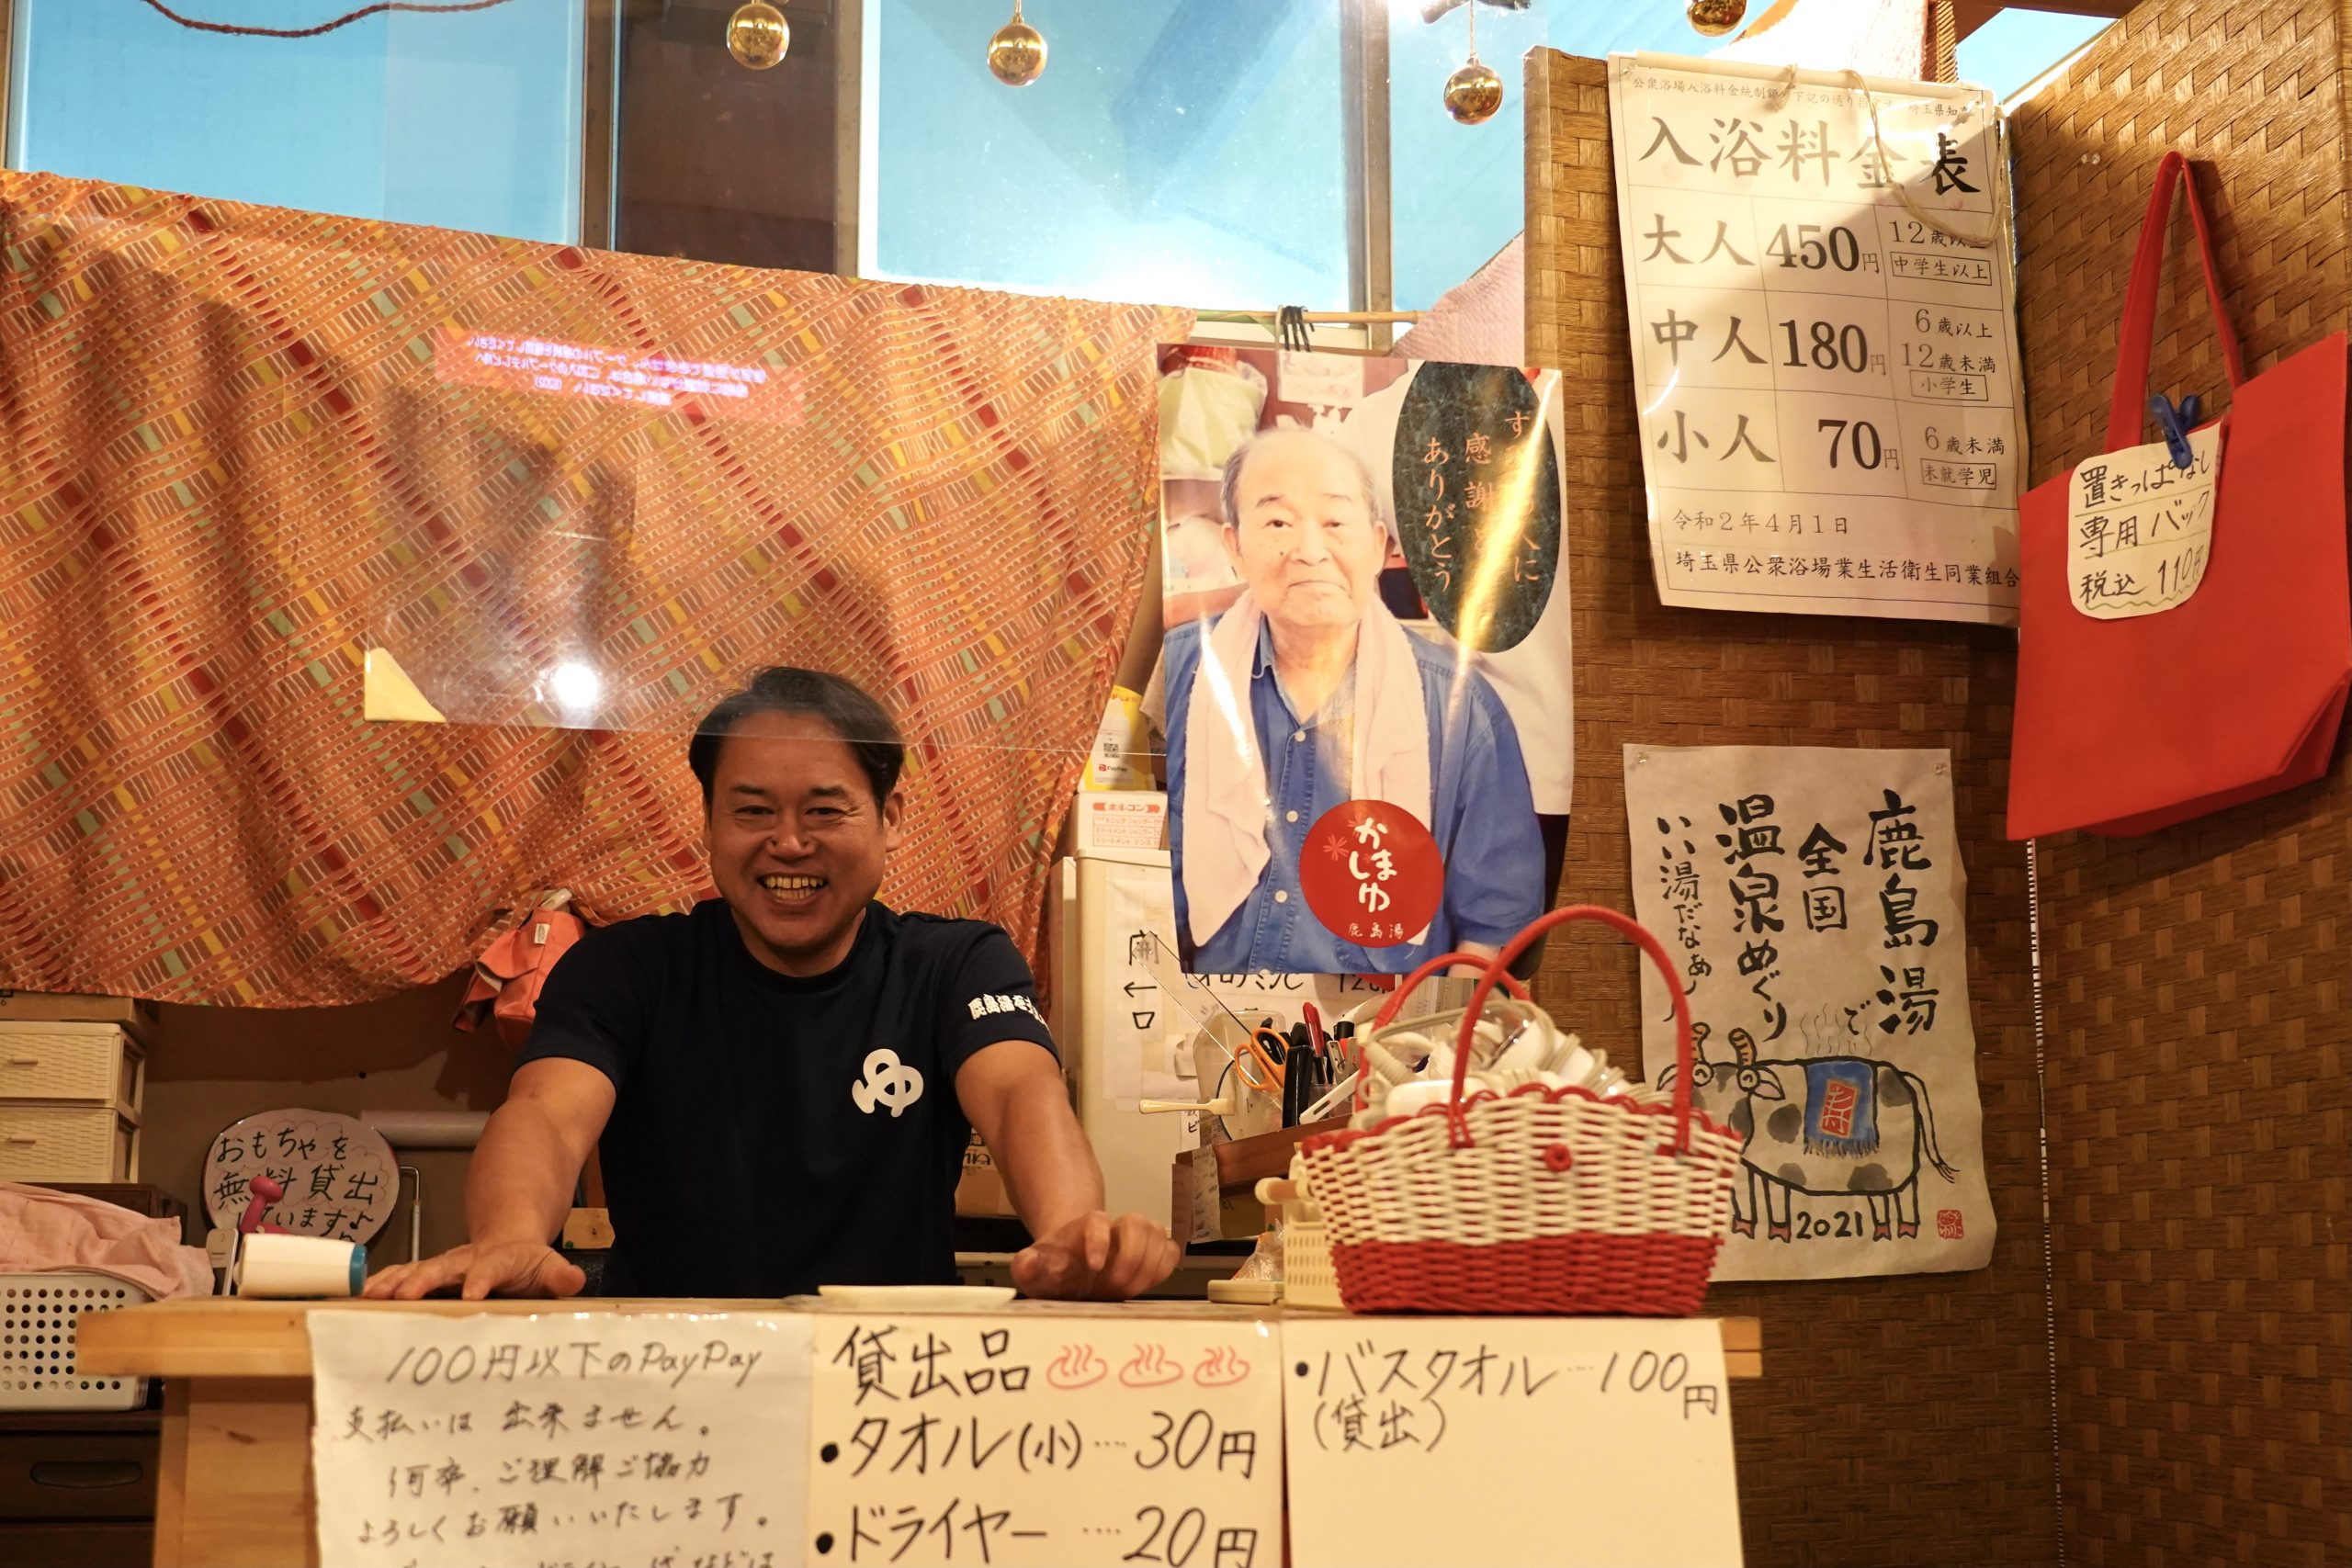 入浴料金表
大人 450円 12歳以上 中学生以上
中人 180円 6歳以上 12歳未満 小学生
小人 70円 6歳未満 未就学児
令和2年4月1日
埼玉県公衆浴場業生活衛生同業組合
置きっぱなし
専用バック
税込110円
感謝
ありがとう
かしまゆ
鹿島湯
鹿島湯で
全国
温泉めぐり
いい湯だなぁ
2021
ゆ
PayPay
ホルコン
おもちゃを
無料貸出
しています♪
100円以下のPayPay
支払いは出来ません。
何卒、ご理解ご協力
よろしくお願いいたします。
貸出品
・タオル(小)…30円
・ドライヤー…20円
・バスタオル…100円
(貸出)